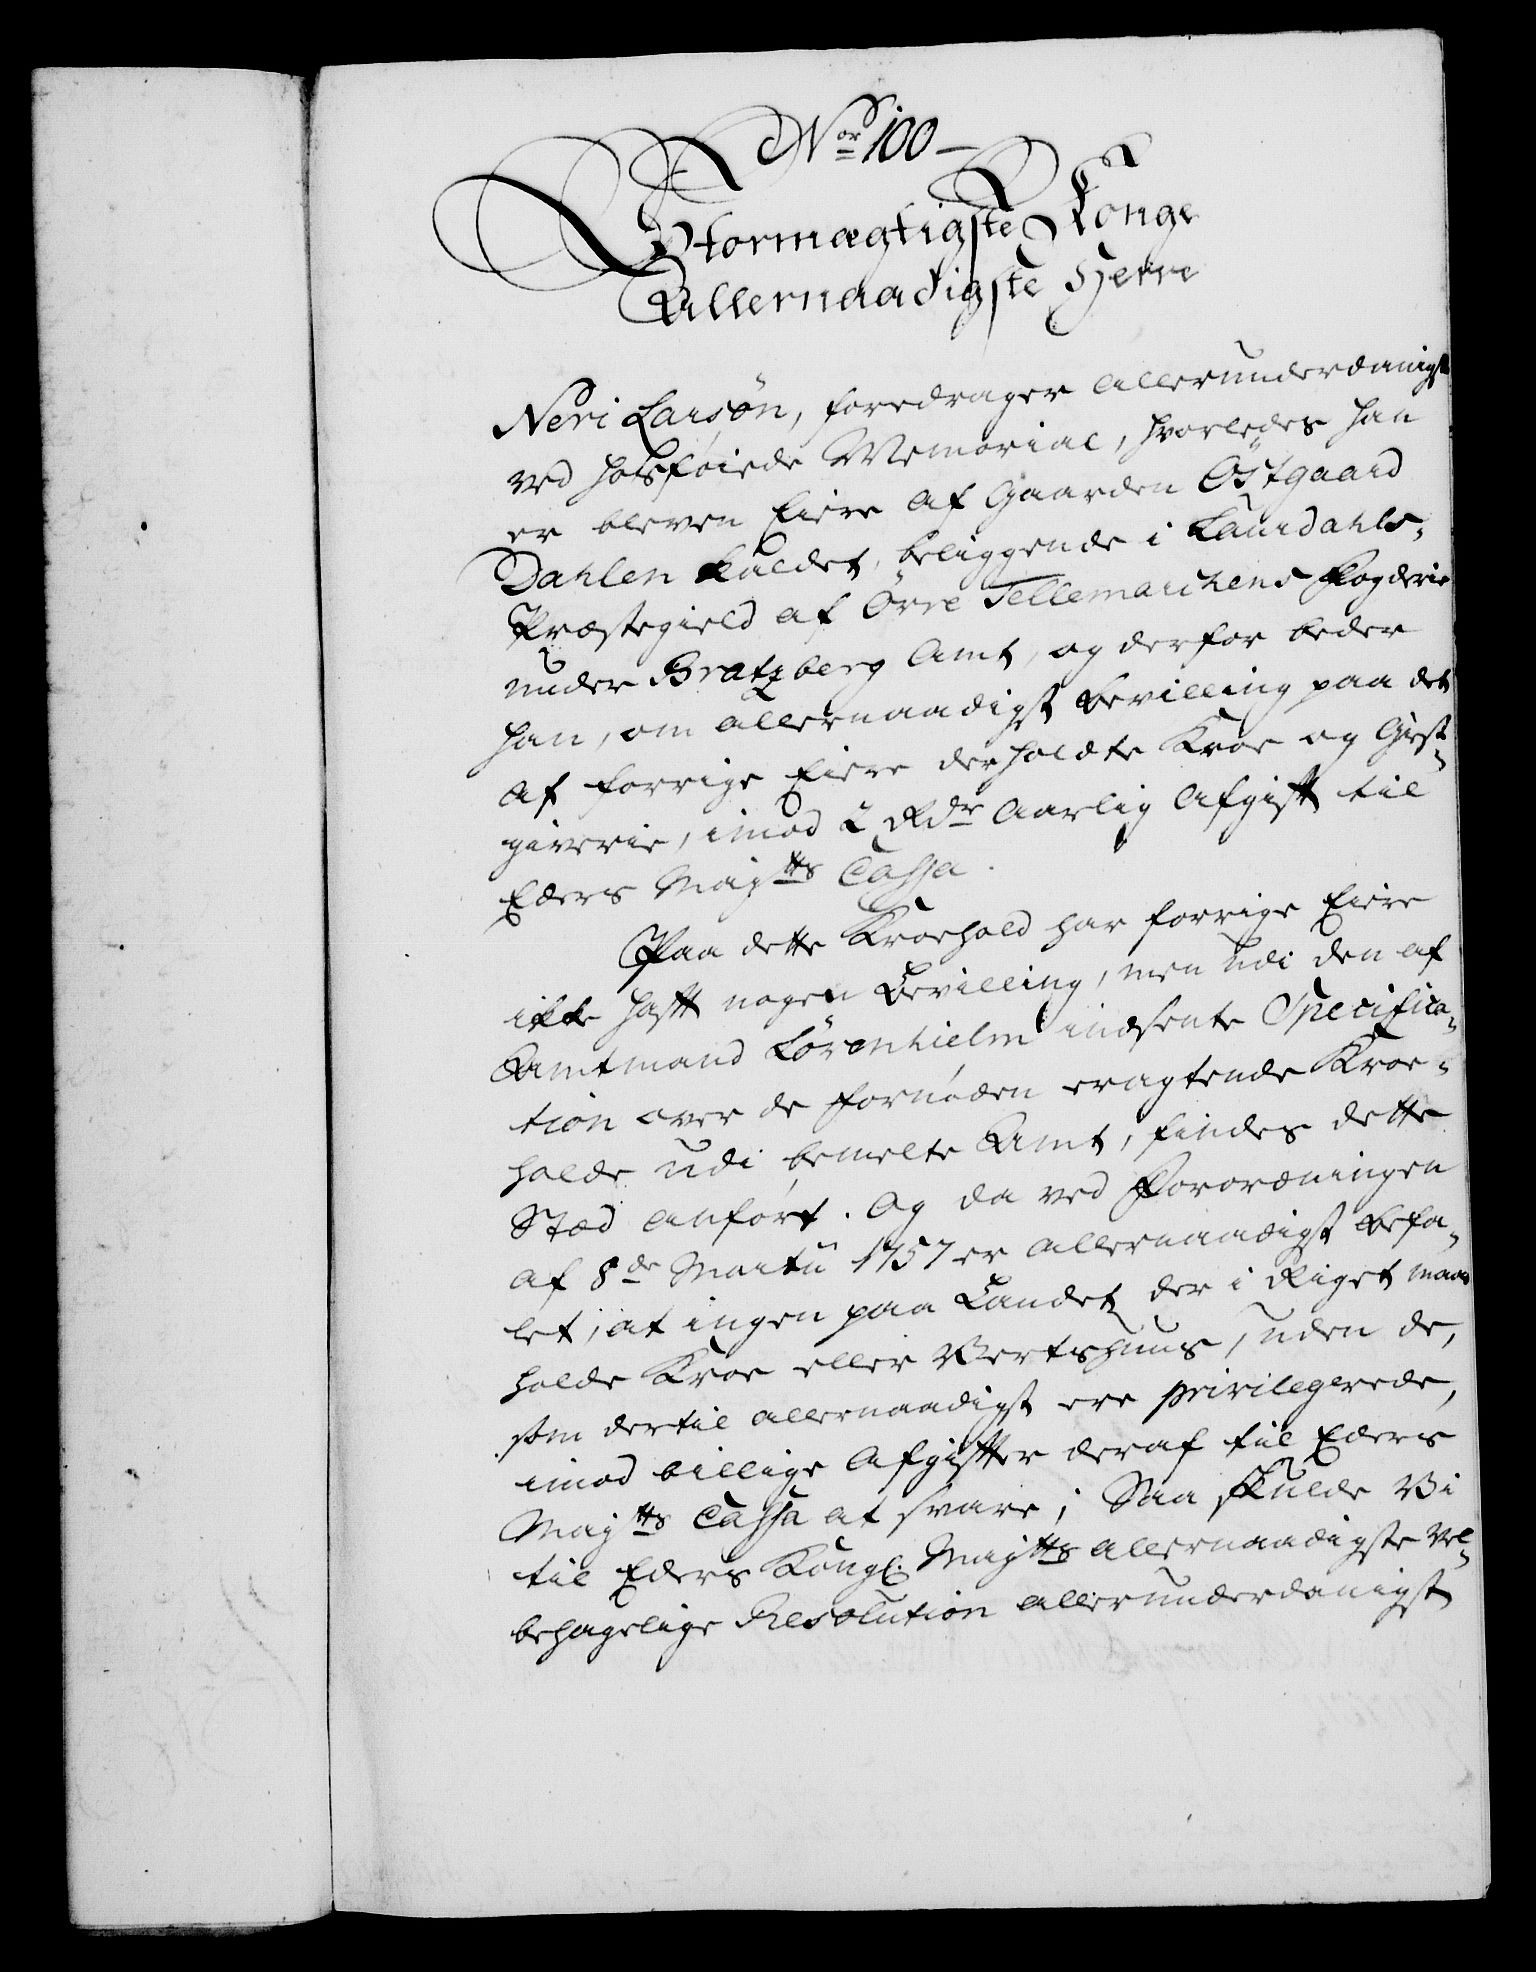 Nor 100 –
Stormægtigste Konge
Allernaadigste Herre
Neri Larsøn, foredrager allerunderdanigst
ved hosføiede Memorial, hvorledes han
er bleven Eiere af Gaarden Östgaard
Dahlen kaldet, beliggende i Laurdahls-
Præstegield af Öwre Tellemarckens Fogderie
under Bratzberg Amt, og derfor beder
han, om allernaadigst Bevilling paa det
af forrige Eiere der holdte Kroe og Giest-
giverie, imod 2 Rdr aarlig Afgift til
Eders Maytts Cassa.
Paa dette Kroehold har forrige Eiere
ikke haft nogen Bevilling, men udi den af
Amtmand Lövenhielm indsente Specifica-
tion over de fornöden eragtende Kroe-
holde udi bemelte Amt, findes dette
Stæd anfört. Og da ved Forordningen
af 8de Martii 1757 er allernaadigst befa-
let, at ingen paa Landet der i Riget maae
holde Kroe eller Vertshuus, uden de,
som dertil allernaadigst ere privilegerede,
imod billige Afgifter deraf til Eders
Maytts Cassa at svare; Saa skulde Vi
til Eders Kongl. Maytts allernaadigste vel-
behagelige Resolution allerunderdanigst